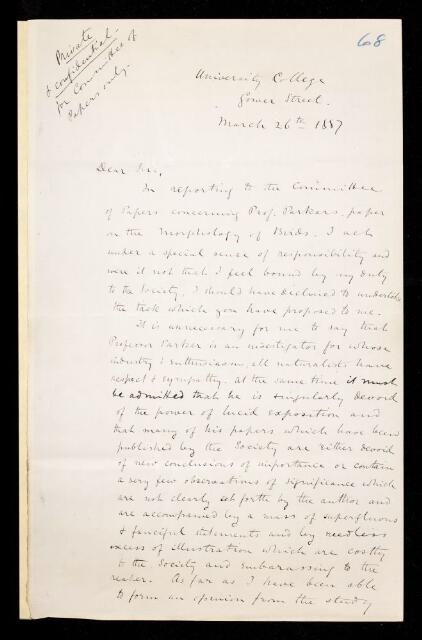 Private
& confidential.
for Committee of
Papers only.
68
University College
Gower Street.
March 26th 1887
Dear Sir,
In reporting to the Committee
of Papers concerning Prof. Parkers paper
on the Morphology of Birds, I act
under a special sense of responsibility and
were it not that I feel bound by my duty
to the Society, I should have declined to undertake
the task which you have proposed to me.
It is unnecessary for me to say that
Professor Parker is an investigator for whose
industry & enthusiasm, all naturalists have
respect & sympathy. At the same time it must
be admitted that he is singularly devoid
of the power of lucid exposition and
that many of his papers which have been
published by the Society are either devoid
of new conclusions of importance or contain
a very few observations of significance which
are not clearly set forth by the author and
are accompanied by a mass of superfluous
& fanciful statements and by needless
excess of illustration which are costly
to the Society and embarassing to the
reader. As far as I have been able
to form an opinion from the study